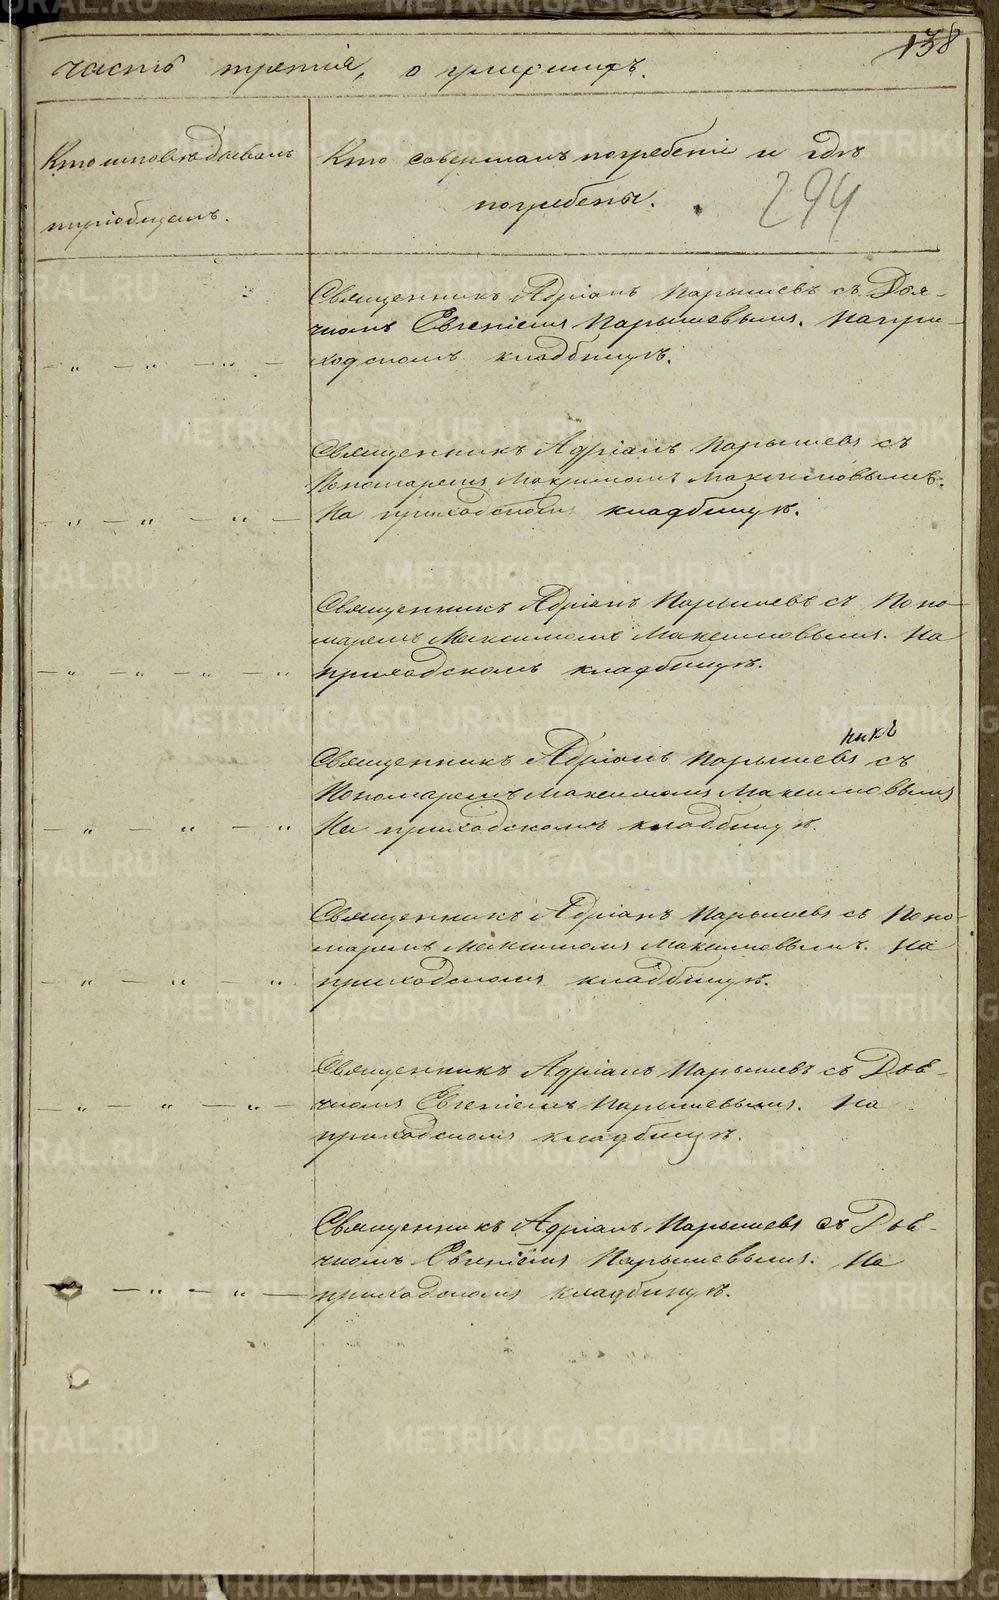 138
часть третія, о умершихъ.
Кто исповѣдывалъ
пріобщалъ.
Кто совершалъ погребеніе и гдѣ
погребены.
294
Священникъ Адріанъ Парышевъ съ Дья-
чкомъ Евгеніемъ Парышевымъ. На при-
ходскомъ кладбищѣ.
— „ — „ — „ —
Священникъ Адріанъ Парышевъ съ
Пономаремъ Максимомъ Максимовымъ.
— „ — „ — „ — На приходскомъ кладбищѣ.
Священникъ Адріанъ Парышевъ съ Поно-
маремъ Максимомъ Максимовымъ. На
— „ — „ — „ — „ приходскомъ кладбищѣ.
никъ
Священникъ Адріанъ Парышевъ съ
Пономаремъ Максимомъ Максимовымъ
— „ — „ — „ На приходскомъ кладбищѣ.
Священникъ Адріанъ Парышевъ съ Поно-
маремъ Максимомъ Максимовымъ. На
— „ — „ — „ приходскомъ кладбищѣ.
Священникъ Адріанъ Парышевъ съ Дья-
— „ — „ — „ — чкомъ Евгеніемъ Парышевымъ. На
приходскомъ кладбищѣ.
Священникъ Адріанъ Парышевъ съ Дья-
чкомъ Евгеніемъ Парышевымъ. На
— „ — „ — приходскомъ кладбищѣ.
METRIKI.GASO-URAL.RU